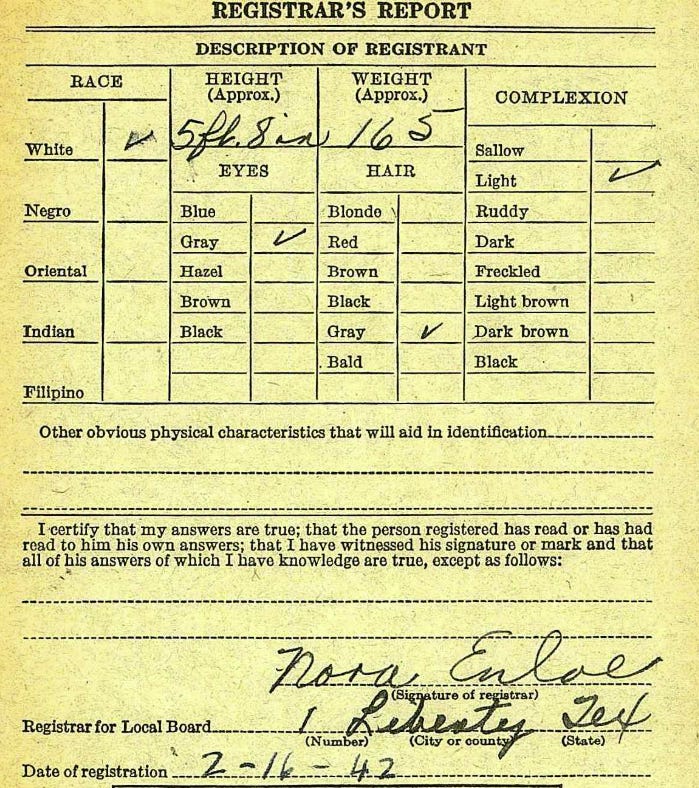 REGISTRAR'S REPORT
DESCRIPTION OF REGISTRANT
RACE HEIGHT (Approx.) WEIGHT (Approx.) COMPLEXION
White ✓ 5 ft. 8 in 165 Sallow
EYES HAIR Light ✓
Negro Blue Blonde Ruddy
Gray ✓ Red Dark
Oriental Hazel Brown Freckled
Brown Black Light brown
Indian Black Gray ✓ Dark brown
Bald Black
Filipino
Other obvious physical characteristics that will aid in identification
I certify that my answers are true; that the person registered has read or has had
read to him his own answers; that I have witnessed his signature or mark and that
all of his answers of which I have knowledge are true, except as follows:
Nora Enloe
(Signature of registrar)
Registrar for Local Board 1 Liberty Tex
(Number) (City or county) (State)
Date of registration 2-16-42